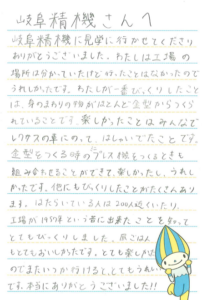 岐阜精機さんへ
岐阜精機に見学に行かせてくださり
ありがとうございました。わたしは工場の
場所は分かっていたけど行ったことはなかったので
うれしかったです。わたしが一番びっくりしたこと
は、身のまわりの物がほとんど金型からつくら
れていることです。楽しかったことはみんなで
レクサスの車にのって、はしゃいでたことです。
金型をつくる時のプレス機をつくるときも
組み立たせることができて、楽しかったし、うれし
かったです。他にもびっくりしたことがたくさんあり
ます。はたらいている人は200人近くいたり、
工場が1959年という昔に出来たことを知って
とてもびっくりしました。昼ごはん
もとてもおいしかったです。とても楽しかった
のでまたいつか行けると、とてもうれしい
です。本当にありがとうございました!!